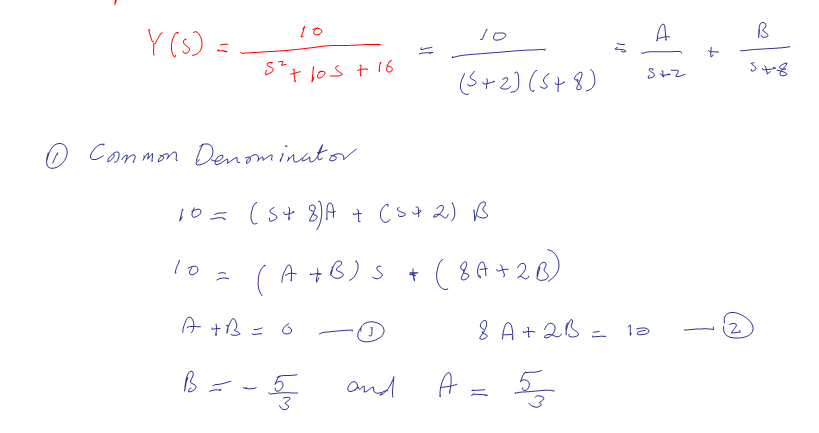 Y(s) = 10/(s²+10s+16) = 10/((s+2)(s+8)) = A/(s+2) + B/(s+8)
① Common Denominator
10 = (s+8)A + (s+2) B
10 = (A+B) s + (8A+2B)
A+B = 0 —① 8A+2B = 10 —②
B = -5/3 and A = 5/3